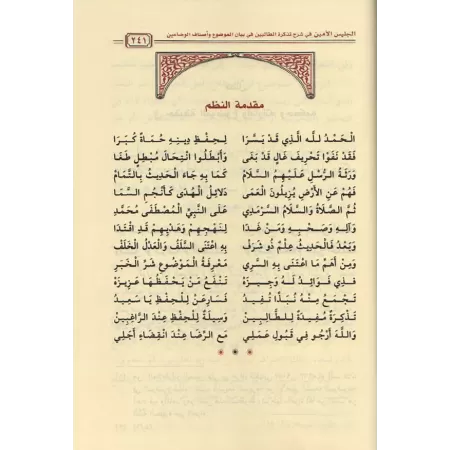 الجليس الأمين في شرح تذكرة الطالبين في بيان الموضوع وأصناف الوضاعين
٢٤١
مقدمة النظم
الْحَمْدُ للهِ الَّذِي قَدْ يَسَّرَا لِحِفْظِ دِينِهِ حُمَاةً كُبَرَا
فَقَدْ نَفَوْا تَحْرِيفَ غَالٍ قَدْ بَغَى وَأَبْطَلُوا انْتِحَالَ مُبْطِلٍ طَغَا
وَرَثَةُ الرُّسْلِ عَلَيْهِمُ السَّلَامْ كَمَا بِهِ جَاءَ الْحَدِيثُ بِالتَّمَامْ
فَهُمْ عَنِ الأَرْضِ يُزِيلُونَ الْعَمَى دَلَائِلُ الْهُدَى كَأَنْجُمِ السَّمَا
ثُمَّ الصَّلَاةُ وَالسَّلَامُ السَّرْمَدِي عَلَى النَّبِيِّ الْمُصْطَفَى مُحَمَّدِ
وَآلِهِ وَصَحْبِهِ وَمَنْ غَدَا لِنَهْجِهِمْ وَهَدْيِهِمْ قَدِ اقْتَدَا
وَبَعْدُ فَالْحَدِيثُ عِلْمٌ ذُو شَرَفْ بِهِ اعْتَنَى السَّلَفُ وَالْعَدْلُ الْخَلَفْ
وَمِنْ أَهَمِّ مَا اعْتَنَى بِهِ السَّرِي مَعْرِفَةُ الْمَوْضُوعِ شَرِّ الْخَبَرِ
فِي فَوَائِدٍ لَهُ وَجِيزَهْ تَنْفَعُ مَنْ يَحْفَظُهَا عَزِيزَهْ
تَجْمَعُ مِنْهُ نُبَذًا تُفِيدُ فَسَارِعَنْ لِلْحِفْظِ يَا سَمِيدُ
تَذْكِرَةٌ مُفِيدَةٌ لِلطَّالِبِينْ وَسِيلَةٌ لِلْحِفْظِ عِنْدَ الرَّاغِبِينْ
وَاللهَ أَرْجُو فِي قَبُولِ عَمَلِي مَعَ الرِّضَا عِنْدَ انْقِضَاءِ أَجَلِي